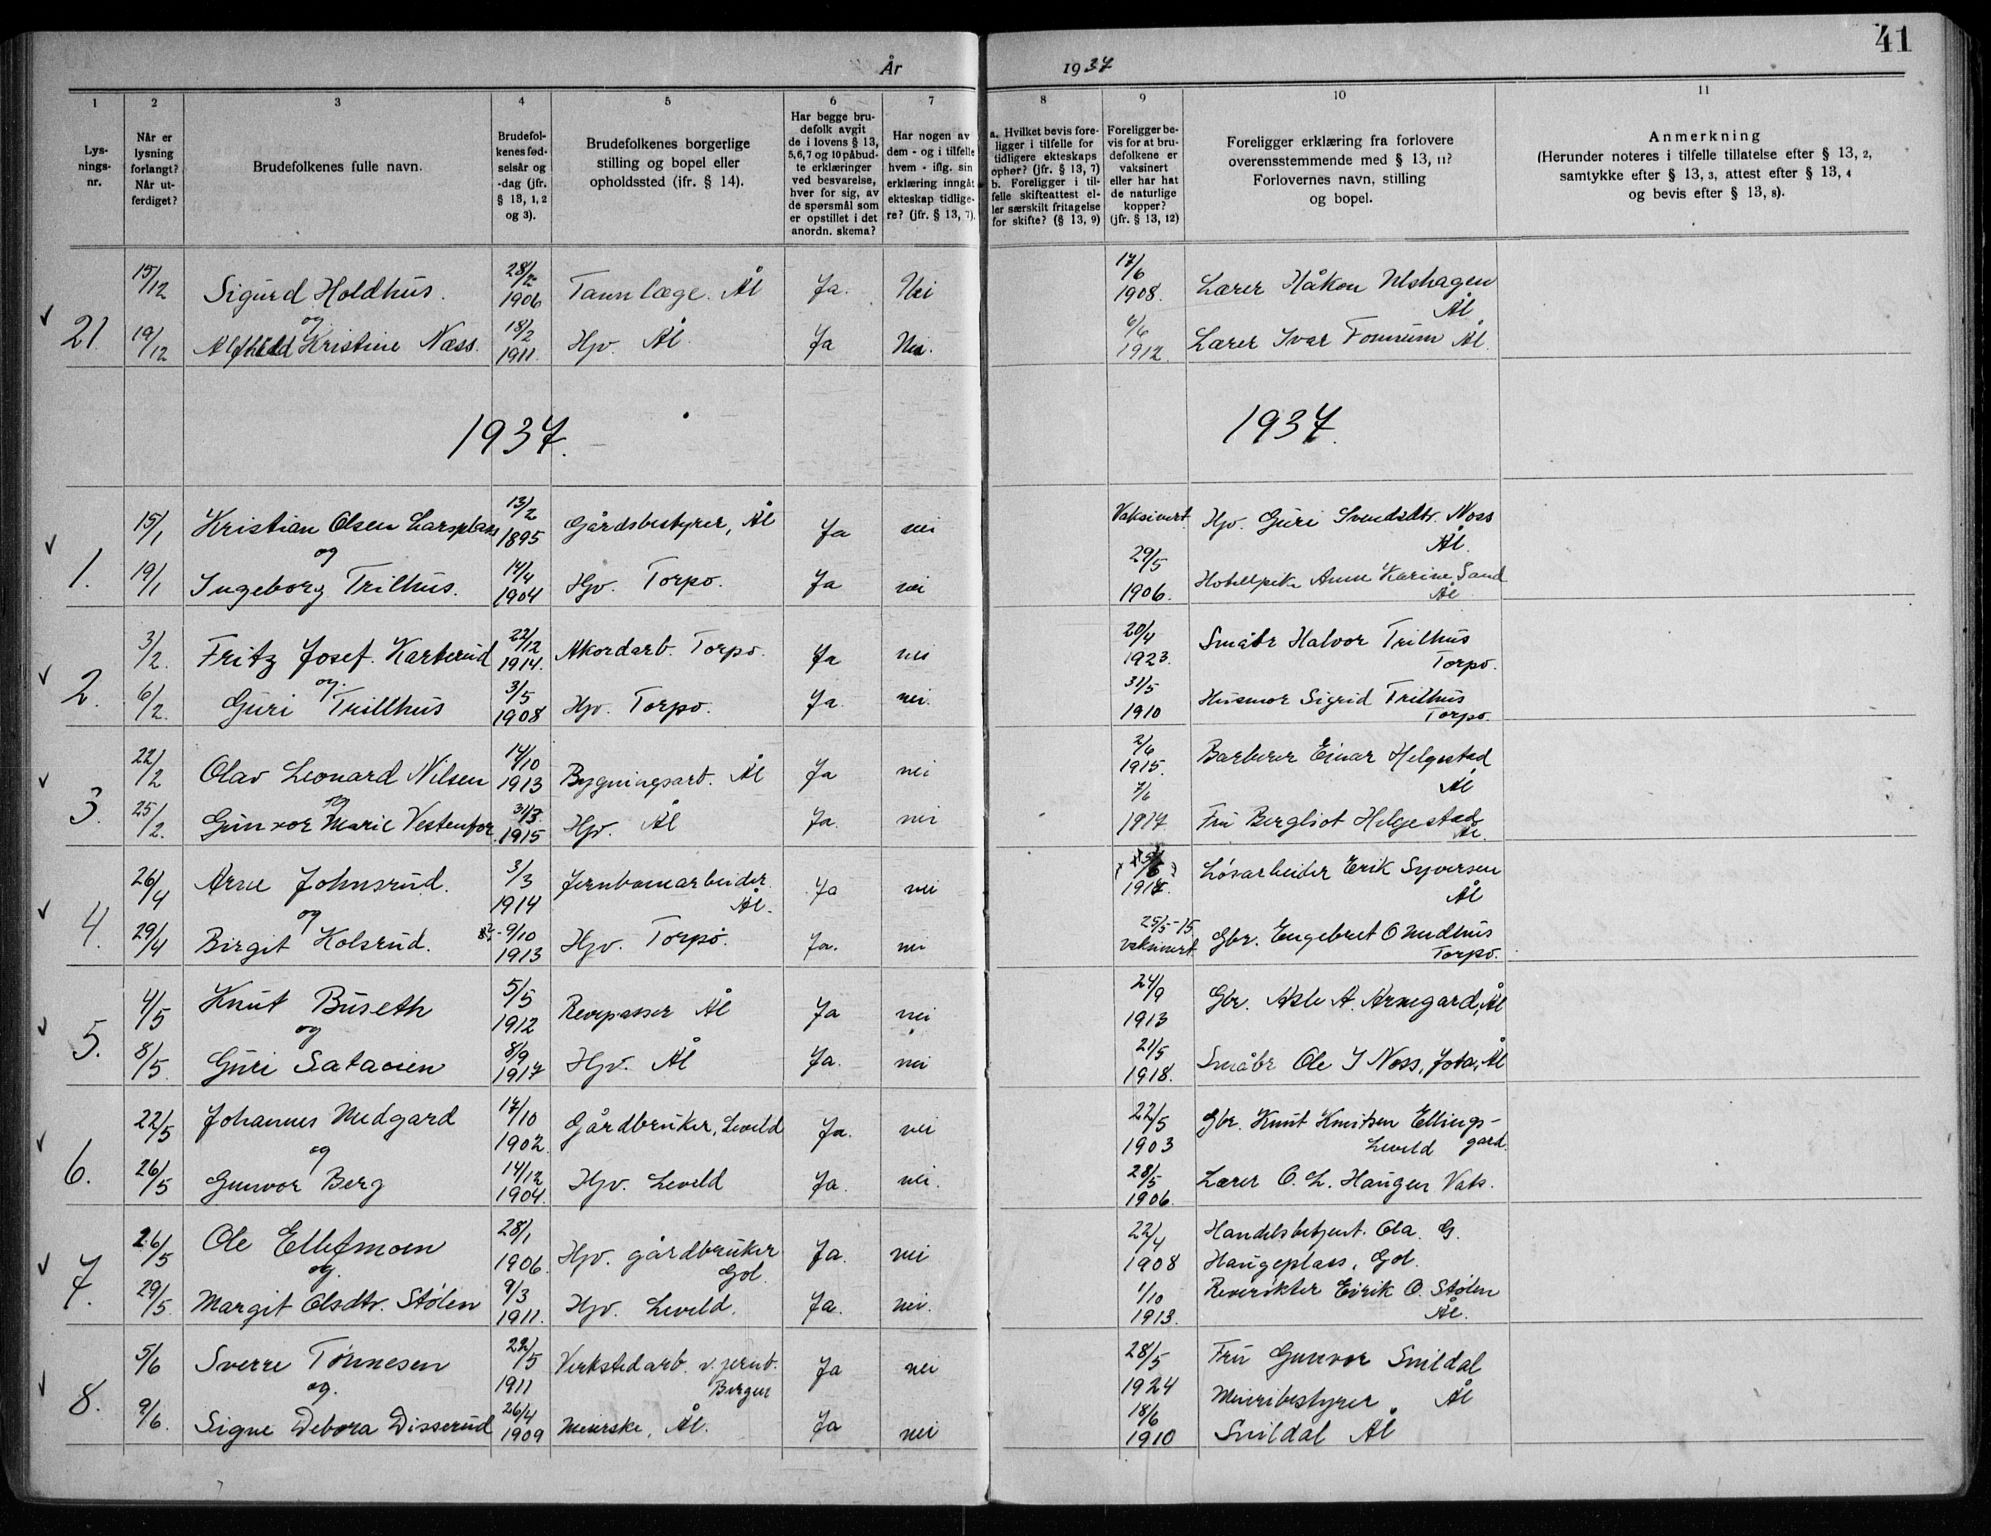 41
År 1937
1 2 3 4 5 6 7 8 9 10 11
Lys-
nings-
nr.
Når er
lysning
forlangt?
Når ut-
ferdiget?
Brudefolkenes fulle navn.
Brudefol-
kenes fød-
selsår og
-dag (jfr.
§ 13, 1, 2
og 3).
Brudefolkenes borgerlige
stilling og bopel eller
opholdssted (jfr. § 14).
Har begge bru-
defolk avgit
de i lovens § 13,
5, 6, 7 og 10 påbud-
te erklæringer
ved besvarelse,
hver for sig, av
de spørsmål som
er opstillet i det
anordn. skema?
Har nogen av
dem - og i tilfelle
hvem - iflg. sin
erklæring inngåt
ekteskap tidlige-
re? (jfr. § 13, 7).
a. Hvilket bevis fore-
ligger i tilfelle for
tidligere ekteskaps
ophør? (jfr. § 13, 7)
b. Foreligger i til-
felle skifteattest el-
ler særskilt fritagelse
for skifte? (§ 13, 9)
Foreligger be-
vis for at bru-
defolkene er
vaksinert
eller har hat
de naturlige
kopper?
(jfr. § 13, 12)
Foreligger erklæring fra forlovere
overensstemmende med § 13, 11?
Forlovernes navn, stilling
og bopel.
Anmerkning
(Herunder noteres i tilfelle tillatelse efter § 13, 2,
samtykke efter § 13, 3, attest efter § 13, 4
og bevis efter § 13, 8).
15/12 Sigurd Holdhus. 28/2 1906 Tannlæge. Ål Ja. Nei 17/6 1908. Lærer Håkon Ulshagen Ål
og
21. 19/12 Alfhild Kristine Næss. 18/2 1911. Hjv. Ål Ja Nei. 6/6 1912 Lærer Ivar Fonnum Ål.
1937. 1937.
15/1 Kristian Olsen Larsplass 13/2 1895 Gårdsbestyrer, Ål Ja nei Vaksinert Hjv. Guri Svendsdtr. Noss Ål.
og
1. 19/1 Ingeborg Trilhus. 14/4 1904 Hjv. Torpo. Ja nei 29/5 1906. Hotellpike Anne Karine Sand Ål
3/2. Fritz Josef. Karterud 22/12 1914. Akordarb. Torpo. Ja nei 20/4 1923. Småbr Halvor Trilhus Torpo.
og.
2. 6/2. Guri Trillhus 3/5 1908 Hjv. Torpo. Ja. nei. 31/5 1910 Husmor Sigrid Trilhus Torpo.
22/2 Olav Leonard Nilsen 14/10 1913 Bygningsarb. Ål Ja nei 2/6 1915. Barberer Einar Helgestad Ål
og
3. 25/2. Gunvor Marie Vestenfor 31/3 1915 Hjv. Ål Ja. nei 7/6 1917 Fru Bergliot Helgestad Ål.
26/4 Arne Johnsrud. 3/3 1914 Jernbanearbeider. Ål. Ja nei 1918. Løsarbeider Erik Syversen Ål
og
4. 29/4 Birgit Kolsrud. 9/10 1913 Hjv. Torpo. Ja. nei 25/5-15 Vaksinert Gbr. Engebret O Nudhus Torpo.
4/5 Knut Buseth 5/5 1912 Revepasser Ål Ja nei 24/9 1913 Gbr. Asle A. Arnegard, Ål
og
5. 8/5. Guri Sataøien 8/9 1917 Hjv. Ål Ja. nei 21/5 1918. Småbr Ole I Noss, Jota, Ål
22/5 Johannes Medgard 17/10 1902. Gårdbruker, Leveld Ja. nei 22/5 1903 Gbr. Knut Knutsen Ellings-
og Leveld gard.
6. 26/5 Gunvor Berg 14/12 1904. Hjv. Leveld Ja. nei. 28/5 1906. Lærer O. L. Haugen Vats.
26/5 Ole Ellefmoen 28/1 1906. Hjv. gårdbruker Gol Ja. nei 22/4 1908 Handelsbetjent. Ola. G.
og. Haugeplass, Gol.
7. 29/5. Margit Olsdtr. Stølen 9/3 1911. Hjv. Leveld. Ja. nei. 1/10 1913. Revirøkter Eirik O. Stølen Ål.
5/6 Sverre Tønnesen 22/5 1911 Verkstedarb. v. jernb. Bergen Ja nei 28/5 1924 Fru Gunvor Snildal Ål
og. Meieribestyrer
8. 9/6. Signe Debora Disserud 26/4 1909 Meierske, Ål. Ja nei 18/6 1910 Snildal Ål